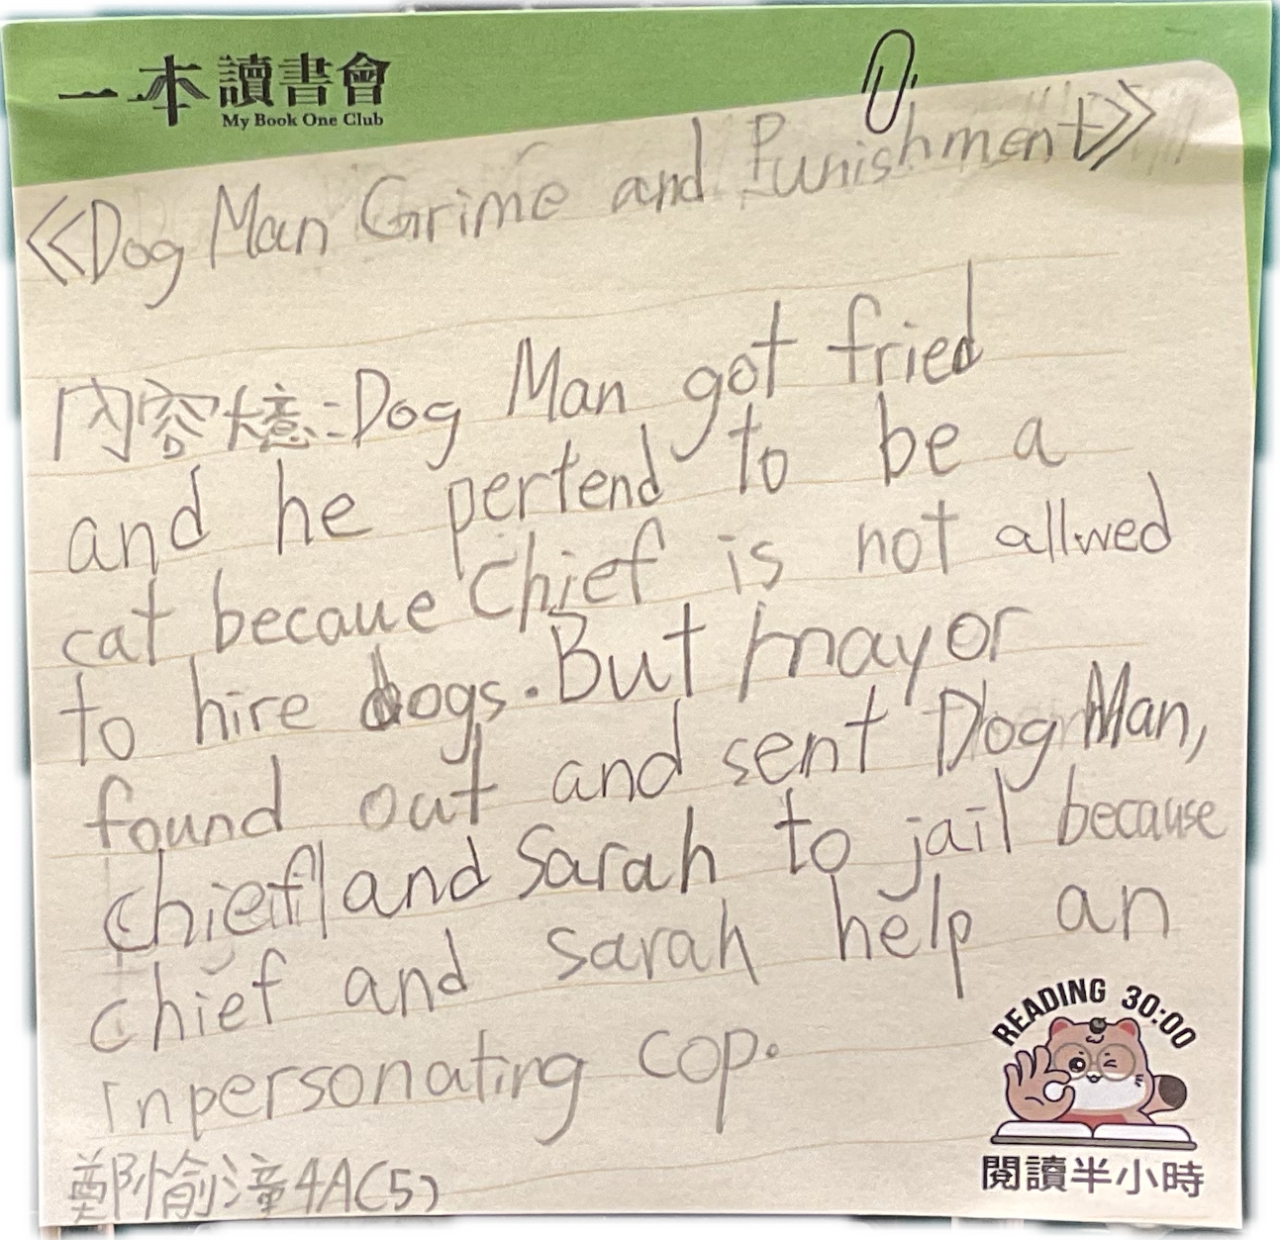 一本讀書會
My Book One Club
《Dog Man Grime and Punishment》
內容大意:Dog Man got fried
and he pertend to be a
cat becaue Chief is not allwed
to hire dogs. But mayor
found out and sent Dog Man,
chief and Sarah to jail because
chief and sarah help an
inpersonating cop.
鄭愉潼4A(5)
READING 30:00
閱讀半小時